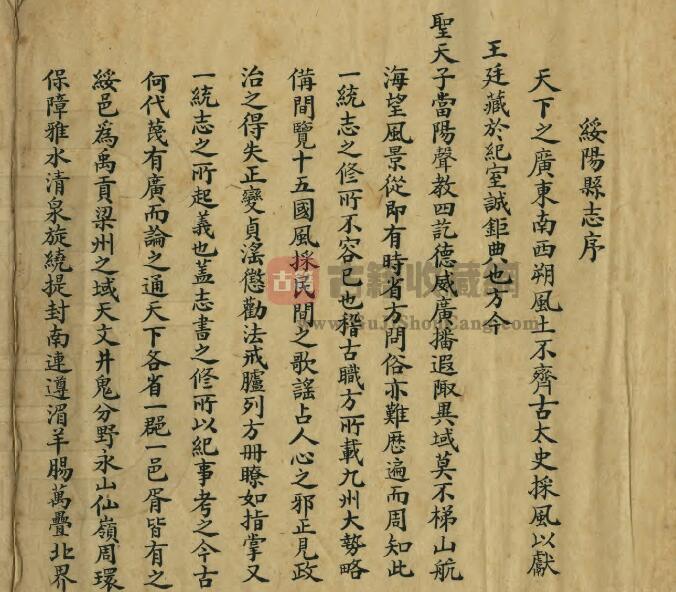 綏陽縣志序
天下之廣東南西朔風土不齊古太史採風以獻
王廷藏於紀室誠鉅典也方今
聖天子當陽聲教四訖德威廣播遐陬異域莫不梯山航
海望風景從即有時省方問俗亦難歷遍而周知此
一統志之修所不容已也稽古職方所載九州大勢略
備間覽十五國風採民間之歌謠占人心之邪正見政
治之得失正變貞淫懲勸法戒臚列方冊瞭如指掌又
一統志之所起義也蓋志書之修所以紀事考之今古
何代蔑有廣而論之通天下各省一郡一邑胥皆有之
綏邑為禹貢梁州之域天文井鬼分野永山仙嶺周環
保障雅水清泉旋繞提封南連遵湄羊腸萬疊北界
古籍收藏網
www.GuJiShouCang.com